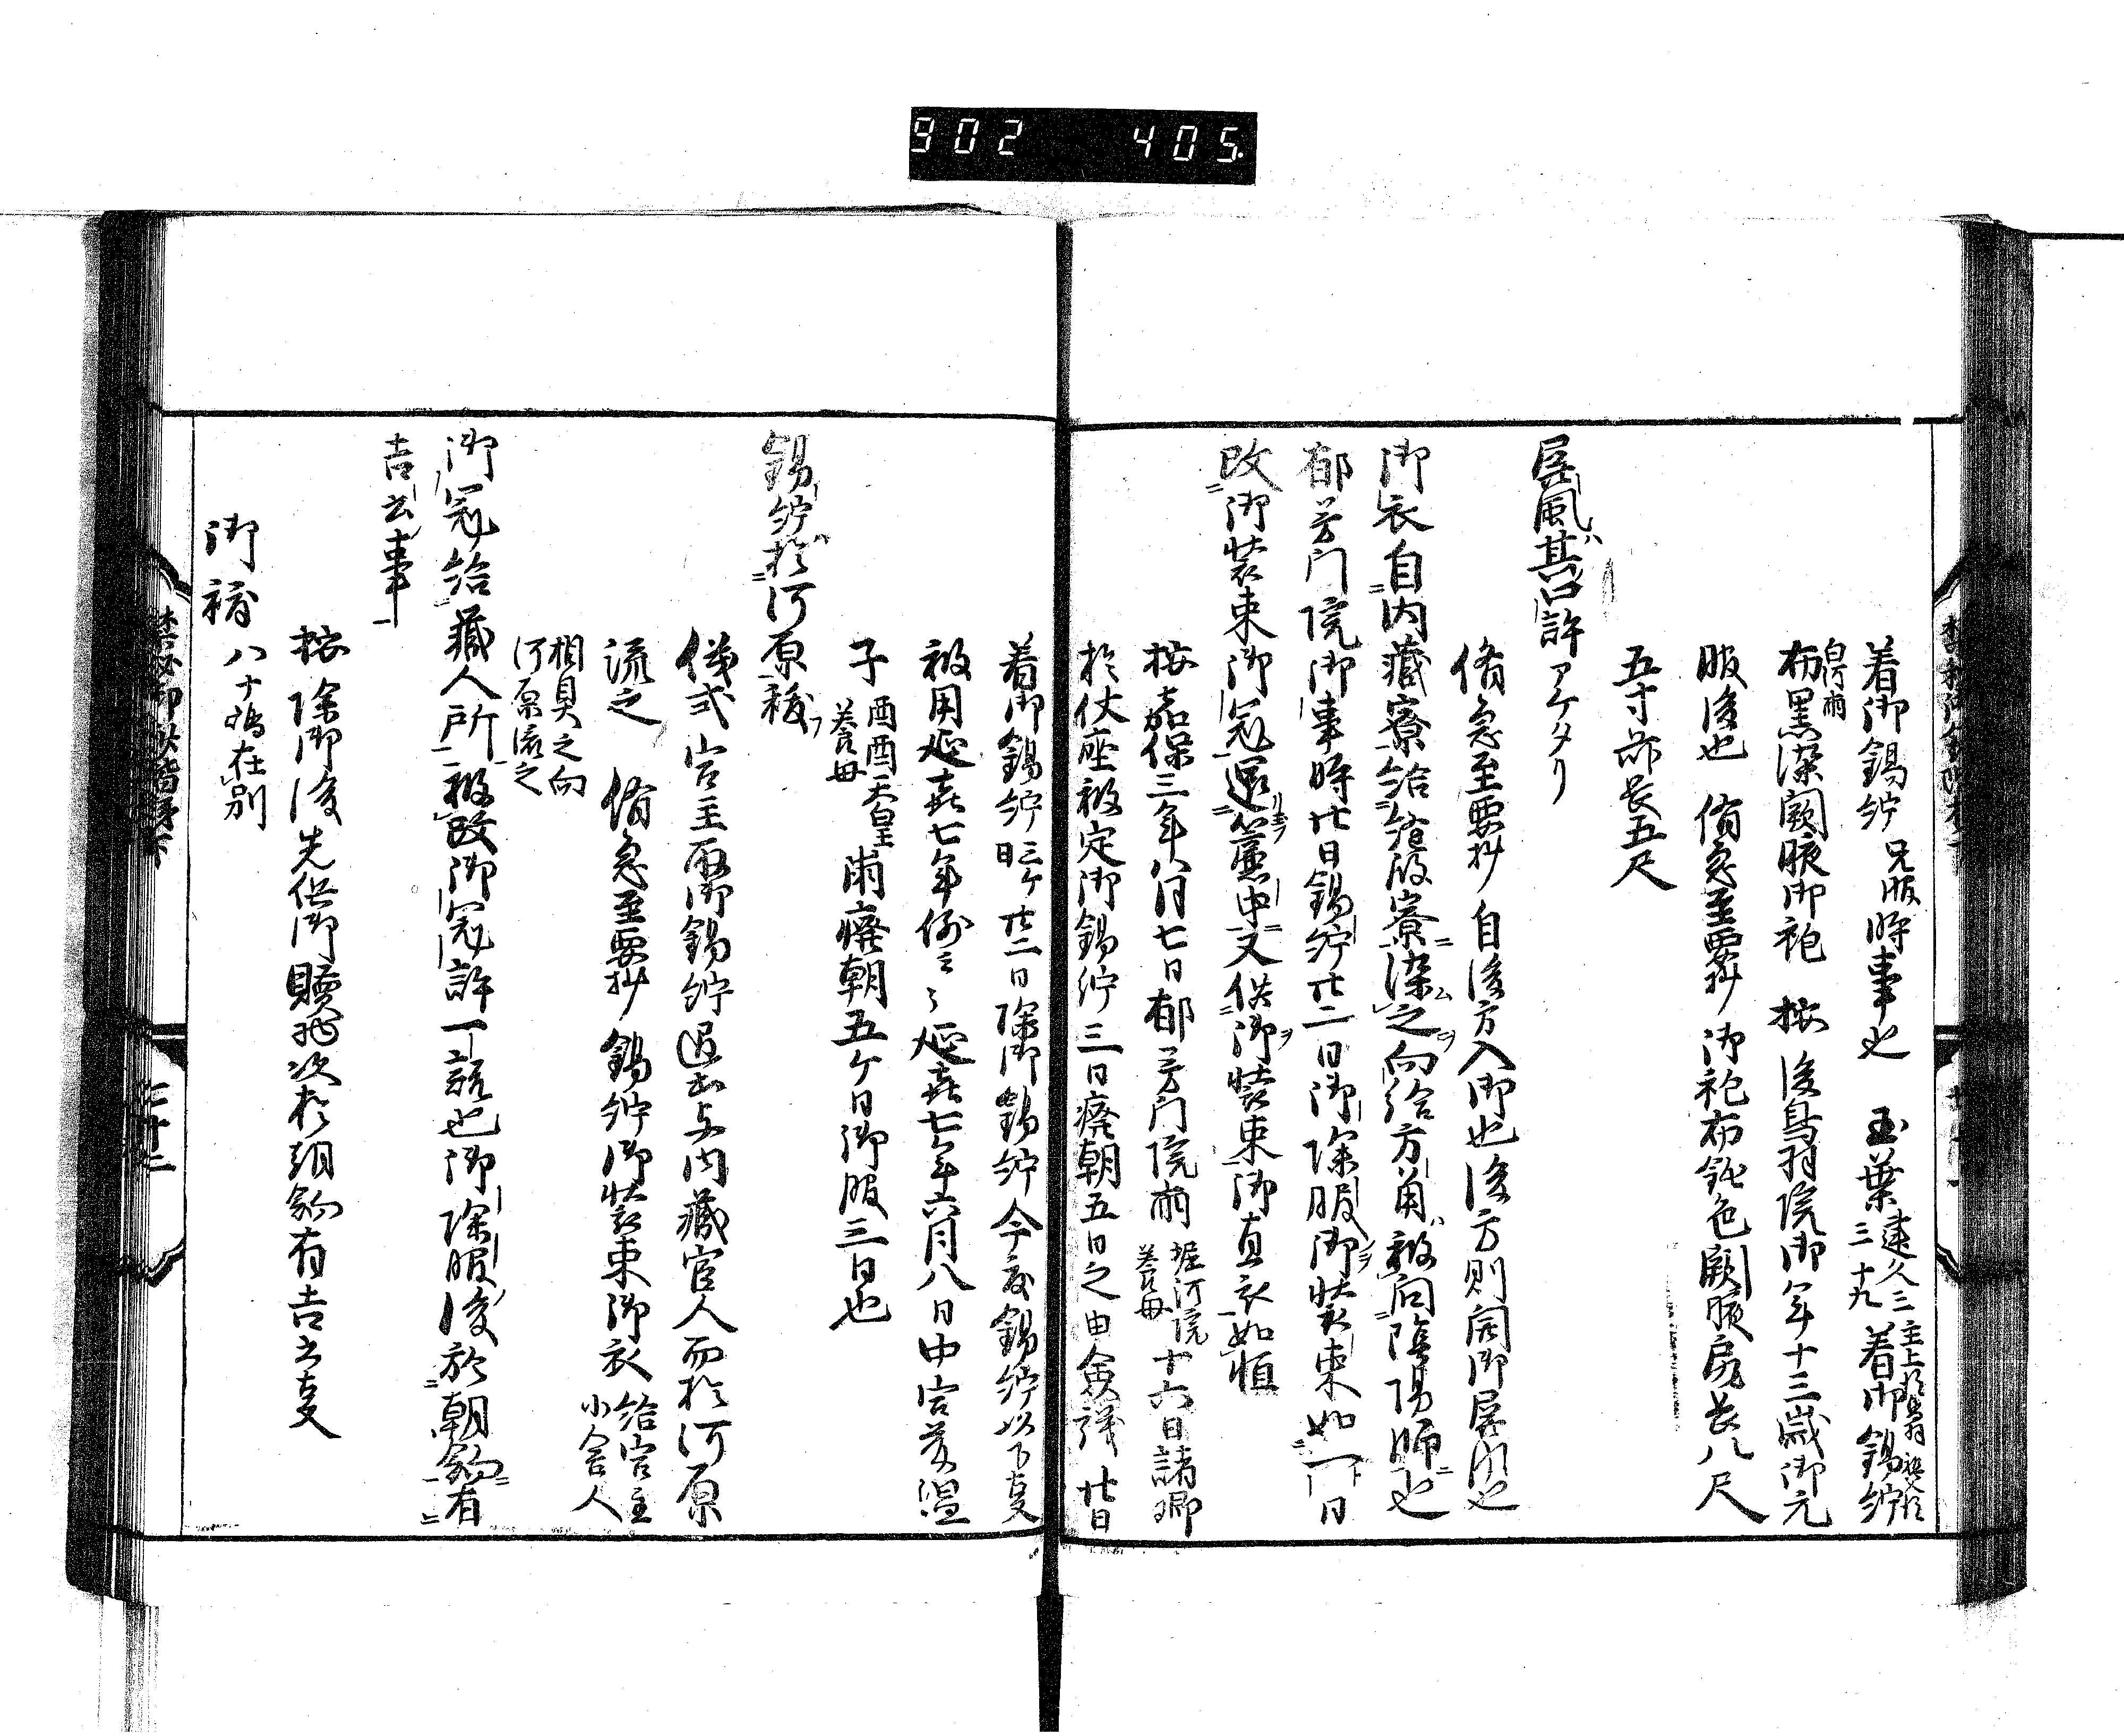 902 405.
着御錫紵 兄服時事也 玉葉 建久三 三十九 主上 着御錫紵
白行雨
布黒染闕腋御袍 按後鳥羽院御年十三歳御元
服後也 脩急至要抄 御袍布鈍色闕腋尻長八尺
五寸 長五尺
屏風其口許アケタリ
脩急至要抄 自後方入御也後方則開御屏風也
御衣自内蔵寮給 殿寮染之向給方角被向陰陽師也
郁芳門院御事時廿日錫紵廿二日御除服御装束如一日
改御装束御冠還簾中又供御装束御直衣如恒
按嘉保三年八月七日郁芳門院崩 堀河院養母 十六日諸卿
於仗座被定御錫紵三日廃朝五日之由僉議廿日
着御錫紵三ケ日廿二日除御錫紵今度錫紵以下事
被用延喜七年例云々延喜七年六月八日中宮藤温
子 醍醐天皇養母 崩廃朝五ケ日御服三日也
錫紵於河原祓
儀式 宮主取御錫紵退出与内蔵官人而於河原
流之 脩急至要抄 錫紵御装束御衣 給宮主小舎人
相具之向河原流之
御冠給蔵人所被改御冠許一説也御除服後於朝餉有
吉書事
按除御後先供御贖物次於朝餉有吉書事
御禊 八十嶋在別
二十二